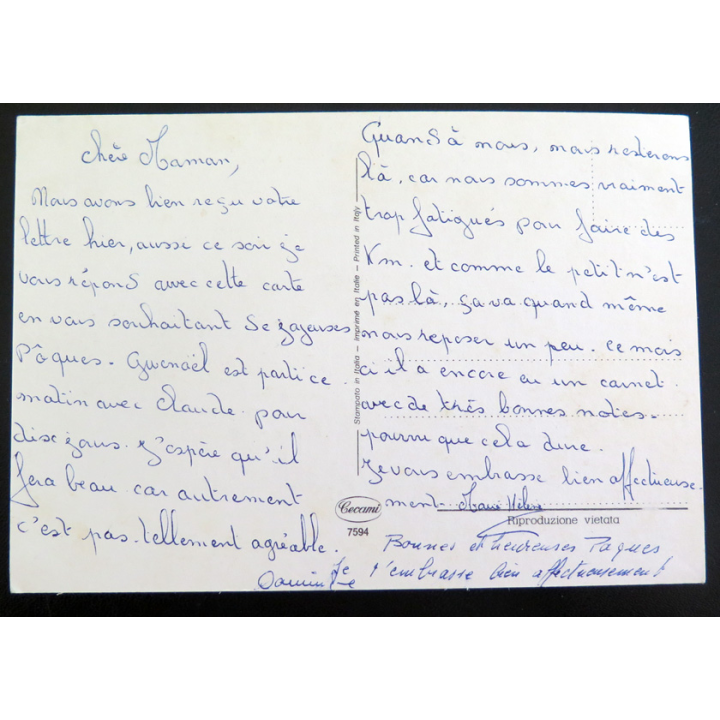 chère Maman,
Nous avons bien reçu votre
lettre hier, aussi ce soir je
vous répond avec cette carte
en vous souhaitant de joyeuses
Pâques. Gwenaël est parti ce
matin avec Claude pour
dix jours. J'espère qu'il
fera beau car autrement
c'est pas tellement agréable.
Quand à nous, nous resterons
là, car nous sommes vraiment
trop fatigués pour faire des
Km. et comme le petit n'est
pas là, ça va quand même
nous reposer un peu. Ce mois
ci il a encore eu un carnet
avec de très bonnes notes.
pourvu que cela dure.
Je vous embrasse bien affectueuse-
ment. Marie Hélène
Bonnes et heureuses Pâques
Je t'embrasse bien affectueusement
Stampato in Italia – Imprimé en Italie – Printed in Italy
Cecami
7594
Riproduzione vietata